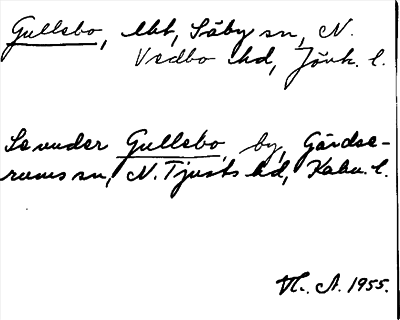 Gullebo, lht, Säby sn, N.
Vedbo hd, Jönk. l.
Se under Gullebo, by, Gärdse-
rums sn, N. Tjusts hd, Kalm. l.
A. 1955.